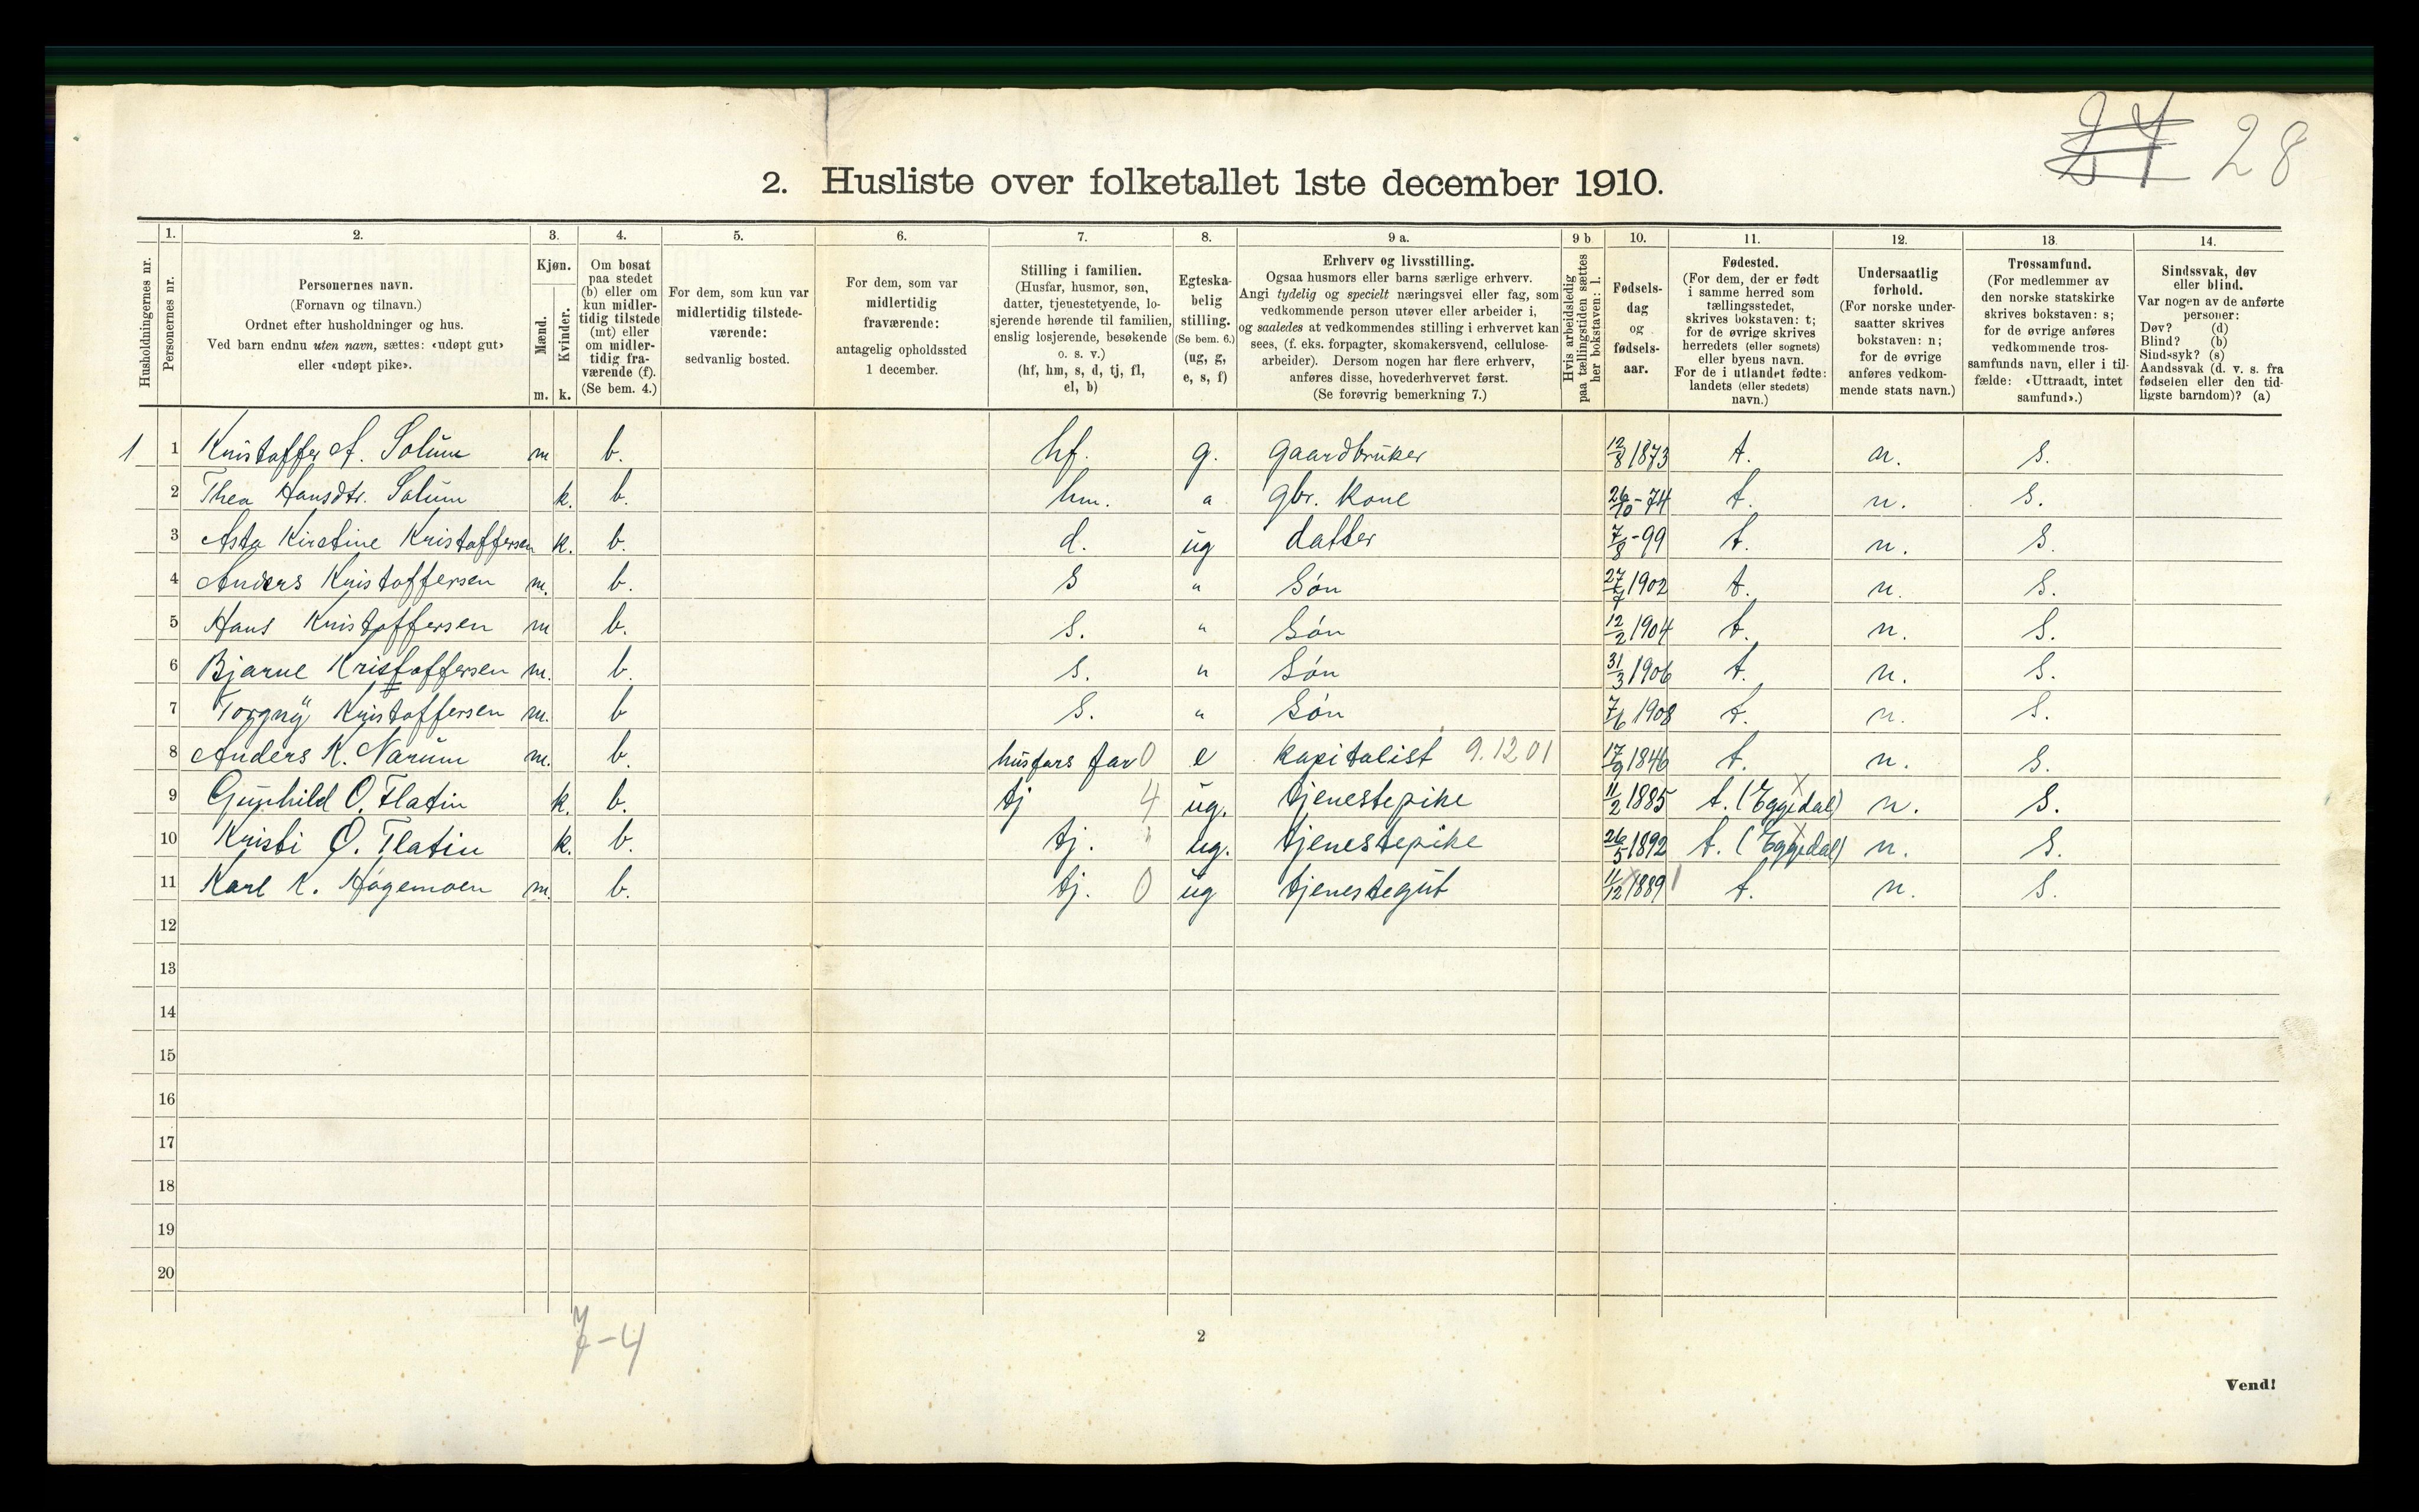 27 28
2. Husliste over folketallet 1ste december 1910.
Husholdningernes nr.
1. Personernes nr.
2. Personernes navn. (Fornavn og tilnavn.) Ordnet efter husholdninger og hus. Ved barn endnu uten navn, sættes: «udøpt gut» eller «udøpt pike».
3. Kjøn. Mænd. m. Kvinder. k.
4. Om bosat paa stedet (b) eller om kun midlertidig tilstede (mt) eller om midlertidig fraværende (f). (Se bem. 4.)
5. For dem, som kun var midlertidig tilstedeværende: sedvanlig bosted.
6. For dem, som var midlertidig fraværende: antagelig opholdssted 1 december.
7. Stilling i familien. (Husfar, husmor, søn, datter, tjenestetyende, losjerende hørende til familien, enslig losjerende, besøkende o. s. v.) (hf, hm, s, d, tj, fl, el, b)
8. Egteskabelig stilling. (Se bem. 6.) (ug, g, e, s, f)
9 a. Erhverv og livsstilling. Ogsaa husmors eller barns særlige erhverv. Angi tydelig og specielt næringsvei eller fag, som vedkommende person utøver eller arbeider i, og saaledes at vedkommendes stilling i erhvervet kan sees, (f. eks. forpagter, skomakersvend, cellulosearbeider). Dersom nogen har flere erhverv, anføres disse, hovederhvervet først. (Se forøvrig bemerkning 7.)
9 b Hvis arbeidsledig paa tællingstiden sættes her bokstaven: l.
10. Fødselsdag og fødselsaar.
11. Fødested. (For dem, der er født i samme herred som tællingsstedet, skrives bokstaven: t; for de øvrige skrives herredets (eller sognets) eller byens navn. For de i utlandet fødte: landets (eller stedets) navn.)
12. Undersaatlig forhold. (For norske undersaatter skrives bokstaven: n; for de øvrige anføres vedkommende stats navn.)
13. Trossamfund. (For medlemmer av den norske statskirke skrives bokstaven: s; for de øvrige anføres vedkommende trossamfunds navn, eller i tilfælde: «Uttraadt, intet samfund».)
14. Sindssvak, døv eller blind. Var nogen av de anførte personer: Døv? (d) Blind? (b) Sindssyk? (s) Aandssvak (d. v. s. fra fødselen eller den tidligste barndom)? (a)
1 1 Kristoffer A. Solum m b. hf. g. gaardbruker 12/8 1873 t. n. s.
2 Thea Hansdtr. Solum k. b. hm. " gbr. kone 26/10 - 74 t. n. s.
3 Asta Kirstine Kristoffersen k. b. d. ug datter 7/8 - 99 t. n. s.
4 Anders Kristoffersen m. b. s " Søn 27/7 1902 t. n. s.
5 Hans Kristoffersen m b. s. " Søn 12/2 1904 t. n. s.
6 Bjarne Kristoffersen m. b. s. " Søn 31/3 1906 t. n. s.
7 Torgny Kristoffersen m. b s. " Søn 7/6 1908 t. n. s.
8 Anders K. Narum m. b. husfars far 0 e kapitalist 9.12 01 17/9 1846 t. n. s.
9 Gunhild O. Flatin k. b. tj 4 ug. tjenestepike 11/2 1885 t. (Eggedal) n. s.
10 Kristi O. Flatin k. b. tj. " ug. tjenestepike 26/5 1892 t. (Eggedal) n. s.
11 Karl K. Høgemoen m. b. tj. 0 ug tjenestegut 11/12 1889 t. n. s.
12
13
14
15
16
17
18
19
20
7-4
2
Vend!